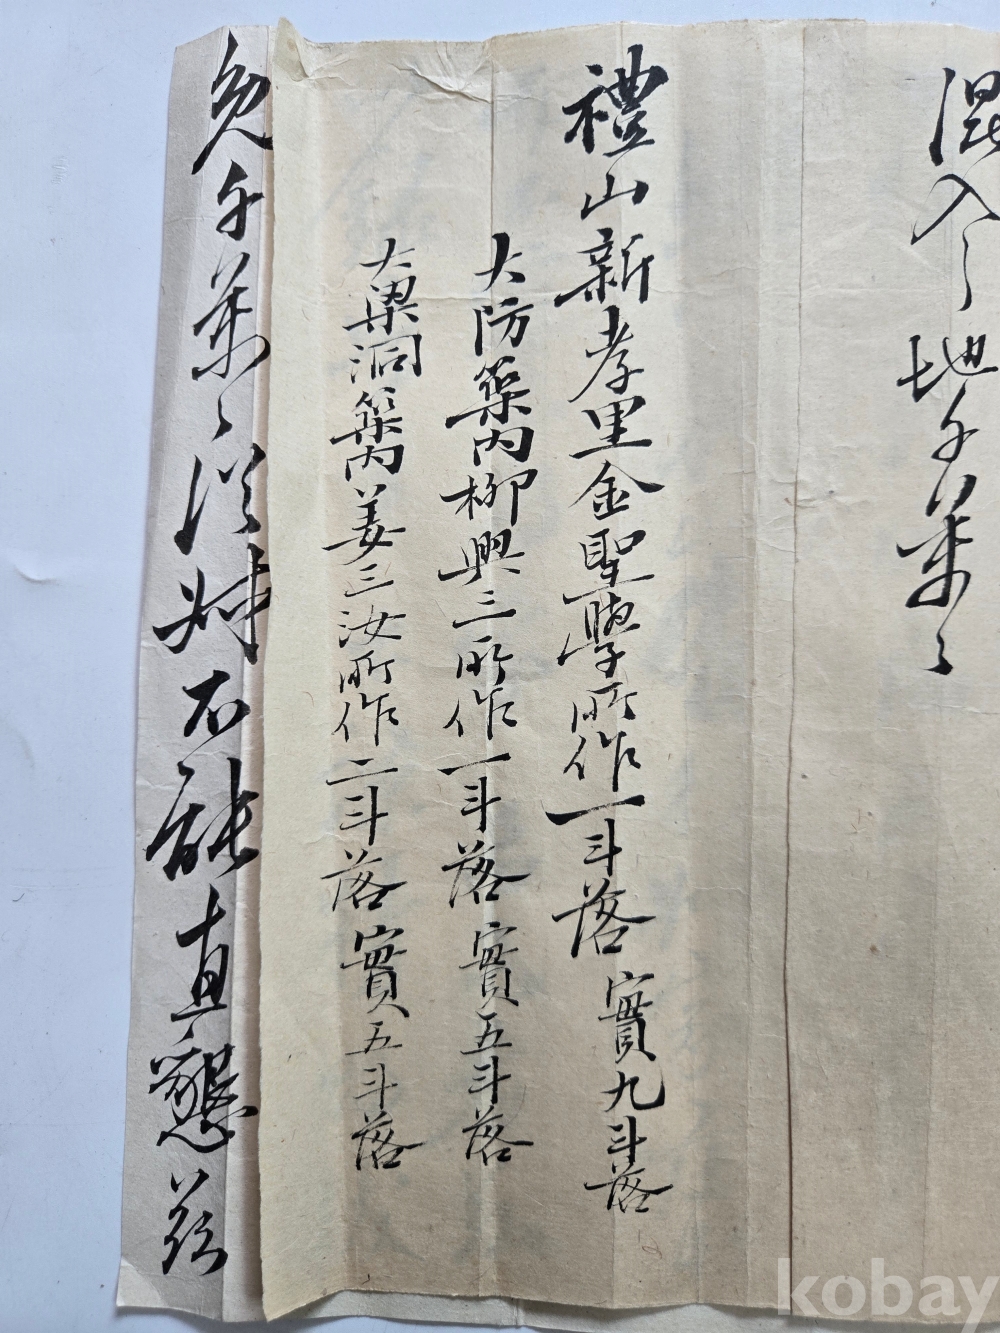 混入之地千萬〻
禮山新孝里金聖學所作一斗落 實九斗落
大防築內柳興三所作一斗落 實五斗落
大梁洞築內姜三汝所作二斗落 實五斗落
千萬〻 不能 直懇
kobay